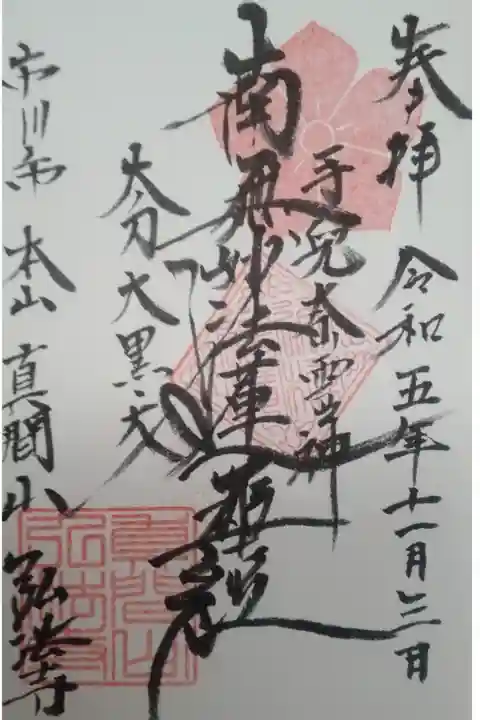 奉拝 令和五年十一月三日
手児奈霊神
南無妙法蓮華経
太刀大黒天
市川市 本山 真間山 弘法寺
真間山弘法寺